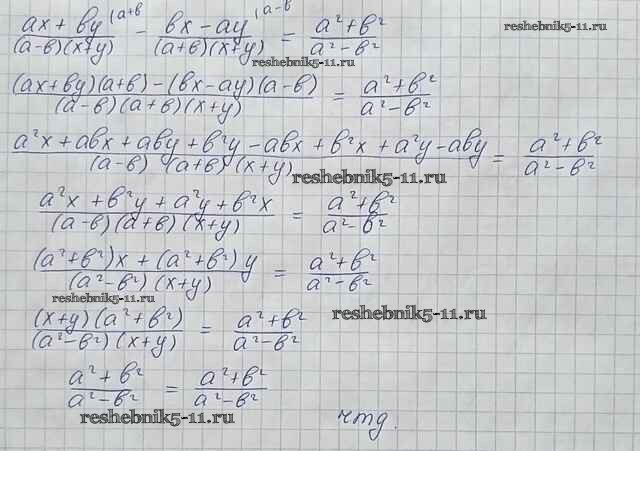 (ax + by)/((a-b)(x+y)) |a+b − (bx − ay)/((a+b)(x+y)) |a−b = (a²+b²)/(a²−b²)
reshebnik5-11.ru
reshebnik5-11.ru
((ax+by)(a+b) − (bx−ay)(a−b))/((a−b)(a+b)(x+y)) = (a²+b²)/(a²−b²)
(a²x + abx + aby + b²y − abx + b²x + a²y − aby)/((a−b)(a+b)(x+y)) = (a²+b²)/(a²−b²)
reshebnik5-11.ru
(a²x + b²y + a²y + b²x)/((a−b)(a+b)(x+y)) = (a²+b²)/(a²−b²)
((a²+b²)x + (a²+b²)y)/((a²−b²)(x+y)) = (a²+b²)/(a²−b²)
reshebnik5-11.ru
((x+y)(a²+b²))/((a²−b²)(x+y)) = (a²+b²)/(a²−b²)
reshebnik5-11.ru
(a²+b²)/(a²−b²) = (a²+b²)/(a²−b²)
reshebnik5-11.ru
чтд.